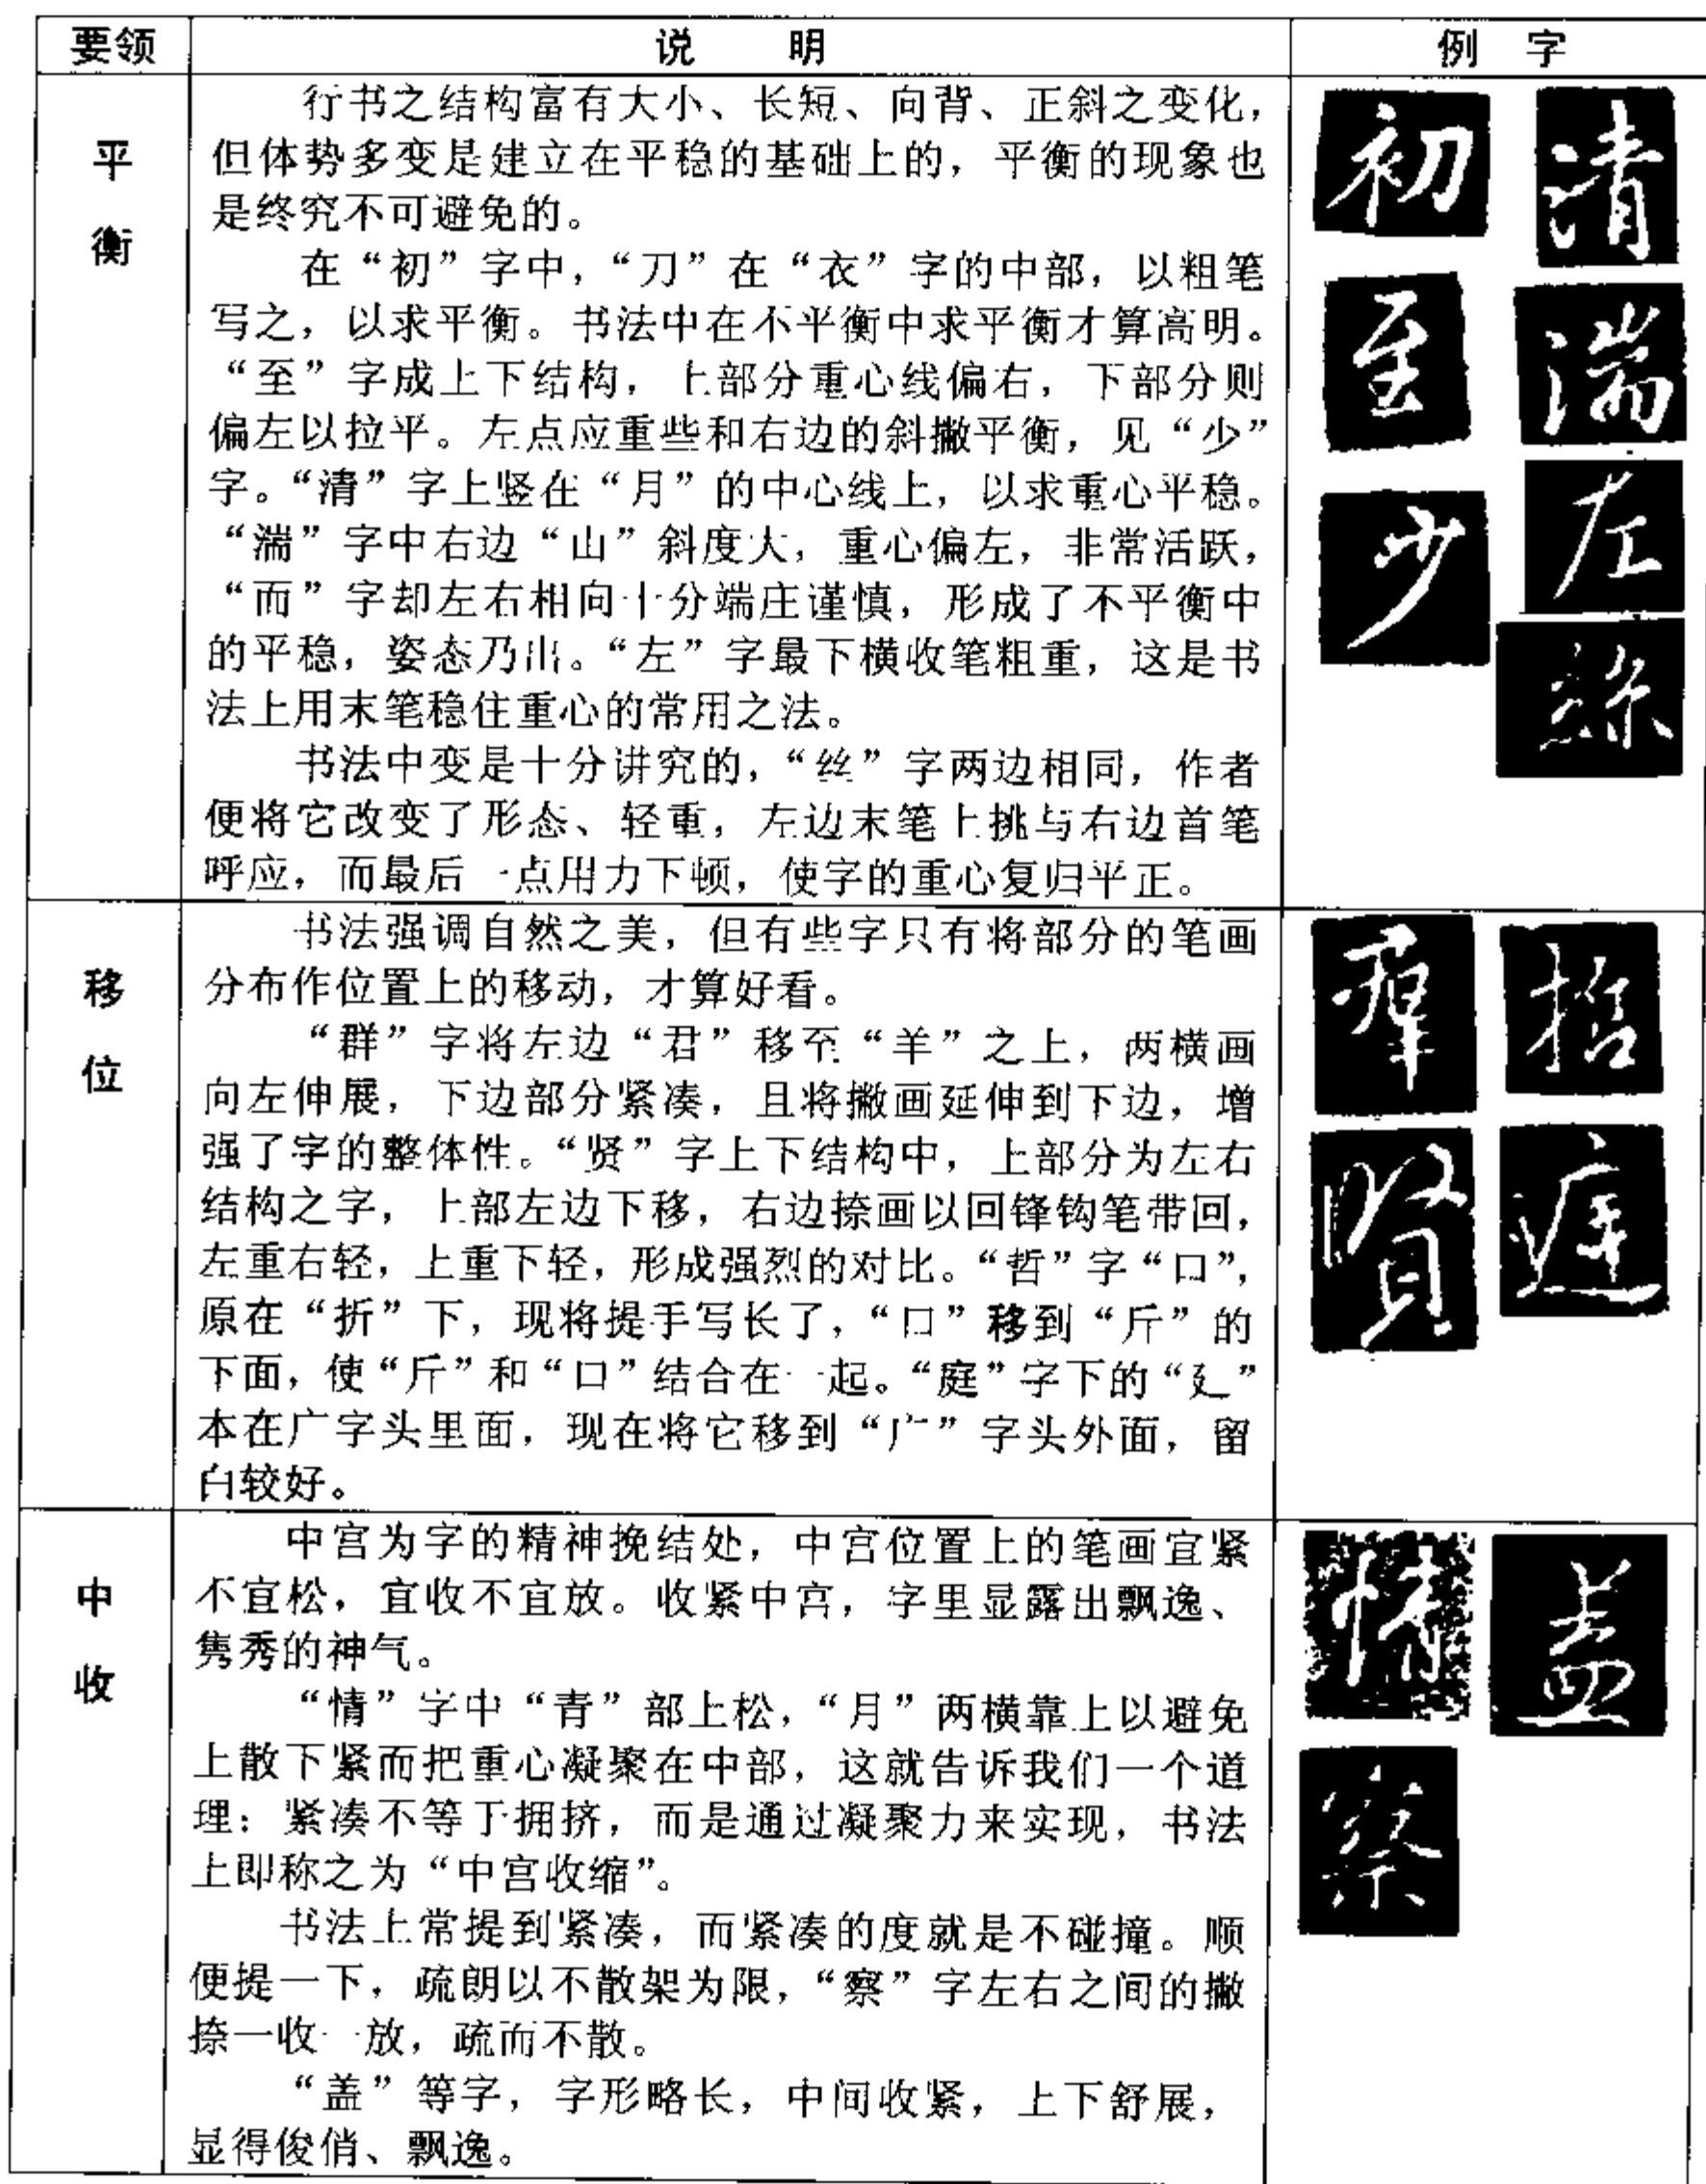 要领 说 明 例 字
平
衡
行书之结构富有大小、长短、向背、正斜之变化，
但体势多变是建立在平稳的基础上的，平衡的现象也
是终究不可避免的。
在“初”字中，“刀”在“衣”字的中部，以粗笔
写之，以求平衡。书法中在不平衡中求平衡才算高明。
“至”字成上下结构，上部分重心线偏右，下部分则
偏左以拉平。左点应重些和右边的斜撇平衡，见“少”
字。“清”字上竖在“月”的中心线上，以求重心平稳。
“湍”字中右边“山”斜度大，重心偏左，非常活跃，
“而”字却左右相向十分端庄谨慎，形成了不平衡中
的平稳，姿态乃出。“左”字最下横收笔粗重，这是书
法上用末笔稳住重心的常用之法。
书法中变是十分讲究的，“丝”字两边相同，作者
便将它改变了形态、轻重，左边末笔上挑与右边首笔
呼应，而最后一点用力下顿，使字的重心复归平正。
初 清
至 湍
少 左
絲
移
位
书法强调自然之美，但有些字只有将部分的笔画
分布作位置上的移动，才算好看。
“群”字将左边“君”移至“羊”之上，两横画
向左伸展，下边部分紧凑，且将撇画延伸到下边，增
强了字的整体性。“贤”字上下结构中，上部分为左右
结构之字，上部左边下移，右边捺画以回锋钩笔带回，
左重右轻，上重下轻，形成强烈的对比。“哲”字“口”，
原在“折”下，现将提手写长了，“口”移到“斤”的
下面，使“斤”和“口”结合在一起。“庭”字下的“廴”
本在广字头里面，现在将它移到“广”字头外面，留
白较好。
羣 哲
賢 庭
中
收
中宫为字的精神挽结处，中宫位置上的笔画宜紧
不宜松，宜收不宜放。收紧中宫，字里显露出飘逸、
隽秀的神气。
“情”字中“青”部上松，“月”两横靠上以避免
上散下紧而把重心凝聚在中部，这就告诉我们一个道
理：紧凑不等于拥挤，而是通过凝聚力来实现，书法
上即称之为“中宫收缩”。
书法上常提到紧凑，而紧凑的度就是不碰撞。顺
便提一下，疏朗以不散架为限，“察”字左右之间的撇
捺一收一放，疏而不散。
“盖”等字，字形略长，中间收紧，上下舒展，
显得俊俏、飘逸。
情 盖
察